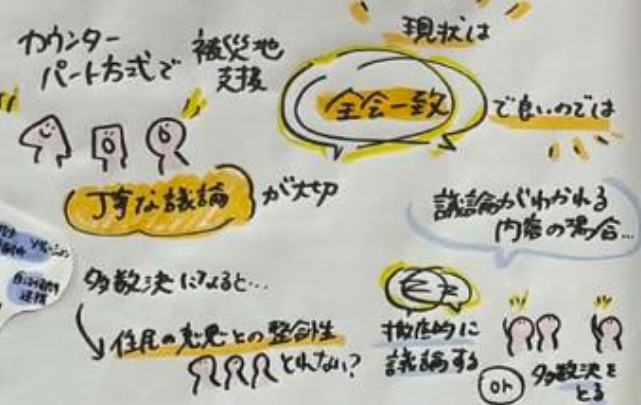 カウンター
パート方式で
被災地
支援
現状は
全会一致
で良いのでは
丁寧な議論
が大切
議論がわかれる
内容の場合…
多数決になると…
住民の意思との整合性
とれない?
徹底的に
議論する
or
多数決を
とる